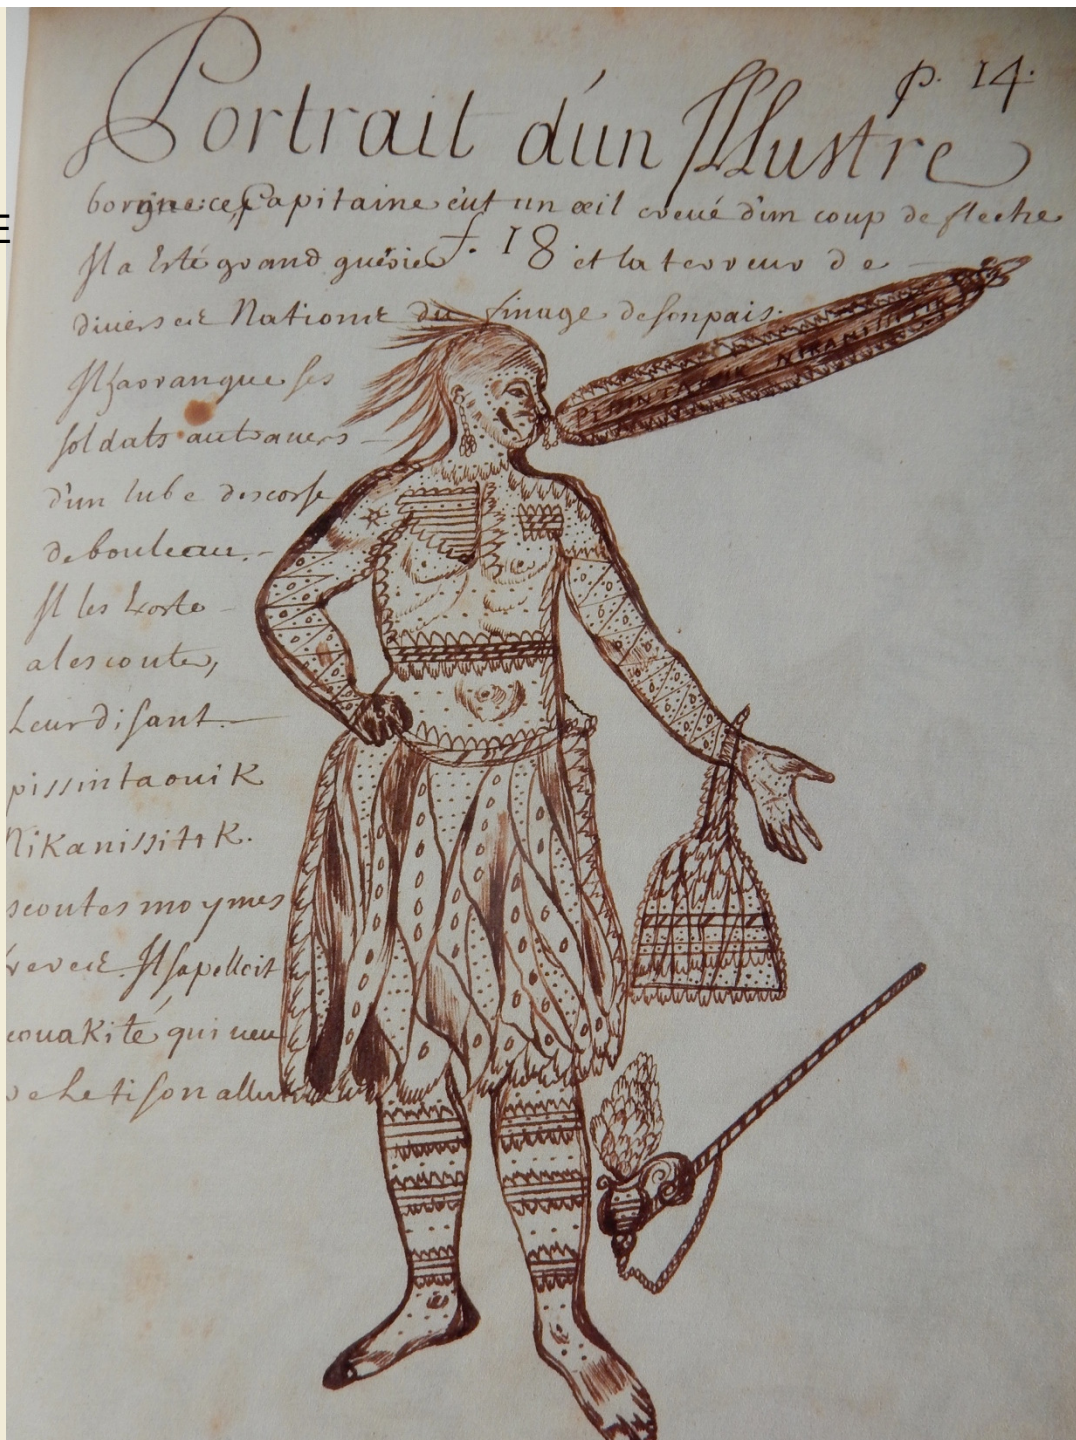 p. 14.
Portrait d'un Illustre
borgne: ce Capitaine eut un œil creué d'un coup de fleche
Il a Esté grand guérier et la terreur de
f. 18
diuerses Nations du finage de son pais.
Il harangue ses
soldats autrauers
d'un tube descorse
de bouleau.
Il les Exorte
a lescouter,
Leur disant
pissintaouik
Nikanissitik.
scoutes moy mes
reres Il sapelloit
couakité qui ueu
le tison allu
PISSINTAOUIK NIKANISSITIK